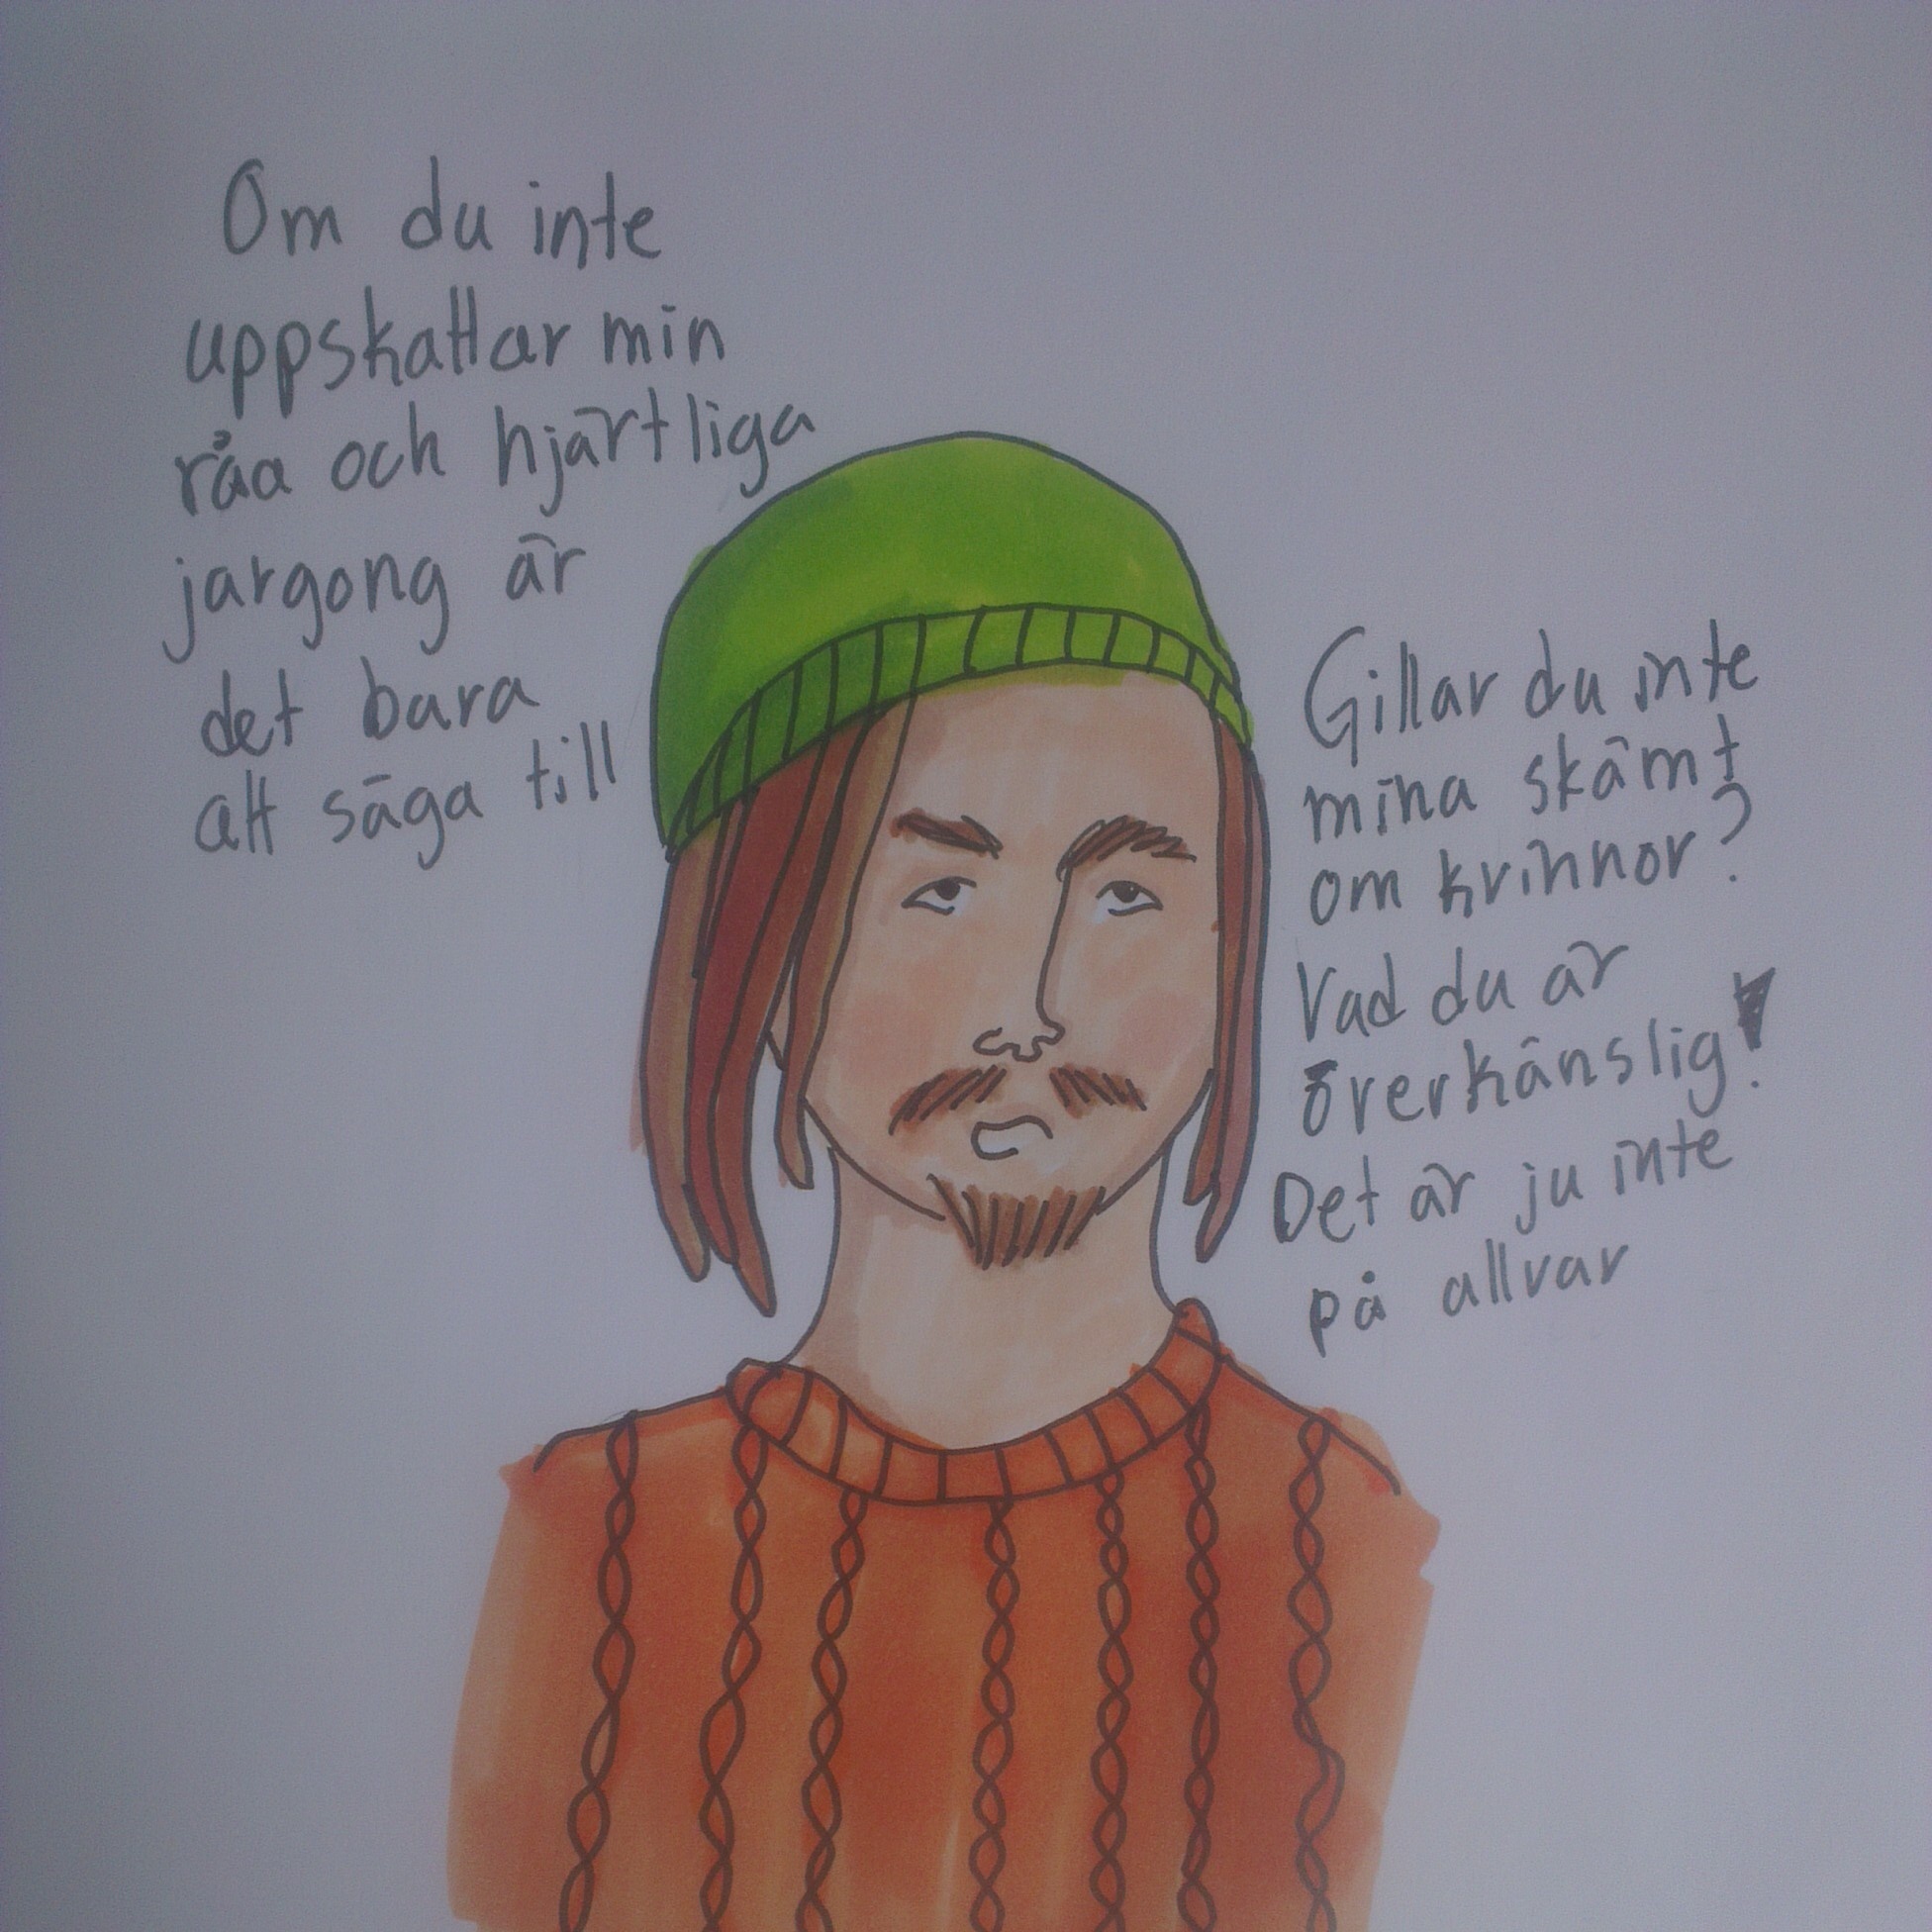 Om du inte
uppskattar min
råa och hjärtliga
jargong är
det bara
att säga till
Gillar du inte
mina skämt
om kvinnor?
Vad du är
överkänslig!
Det är ju inte
på allvar